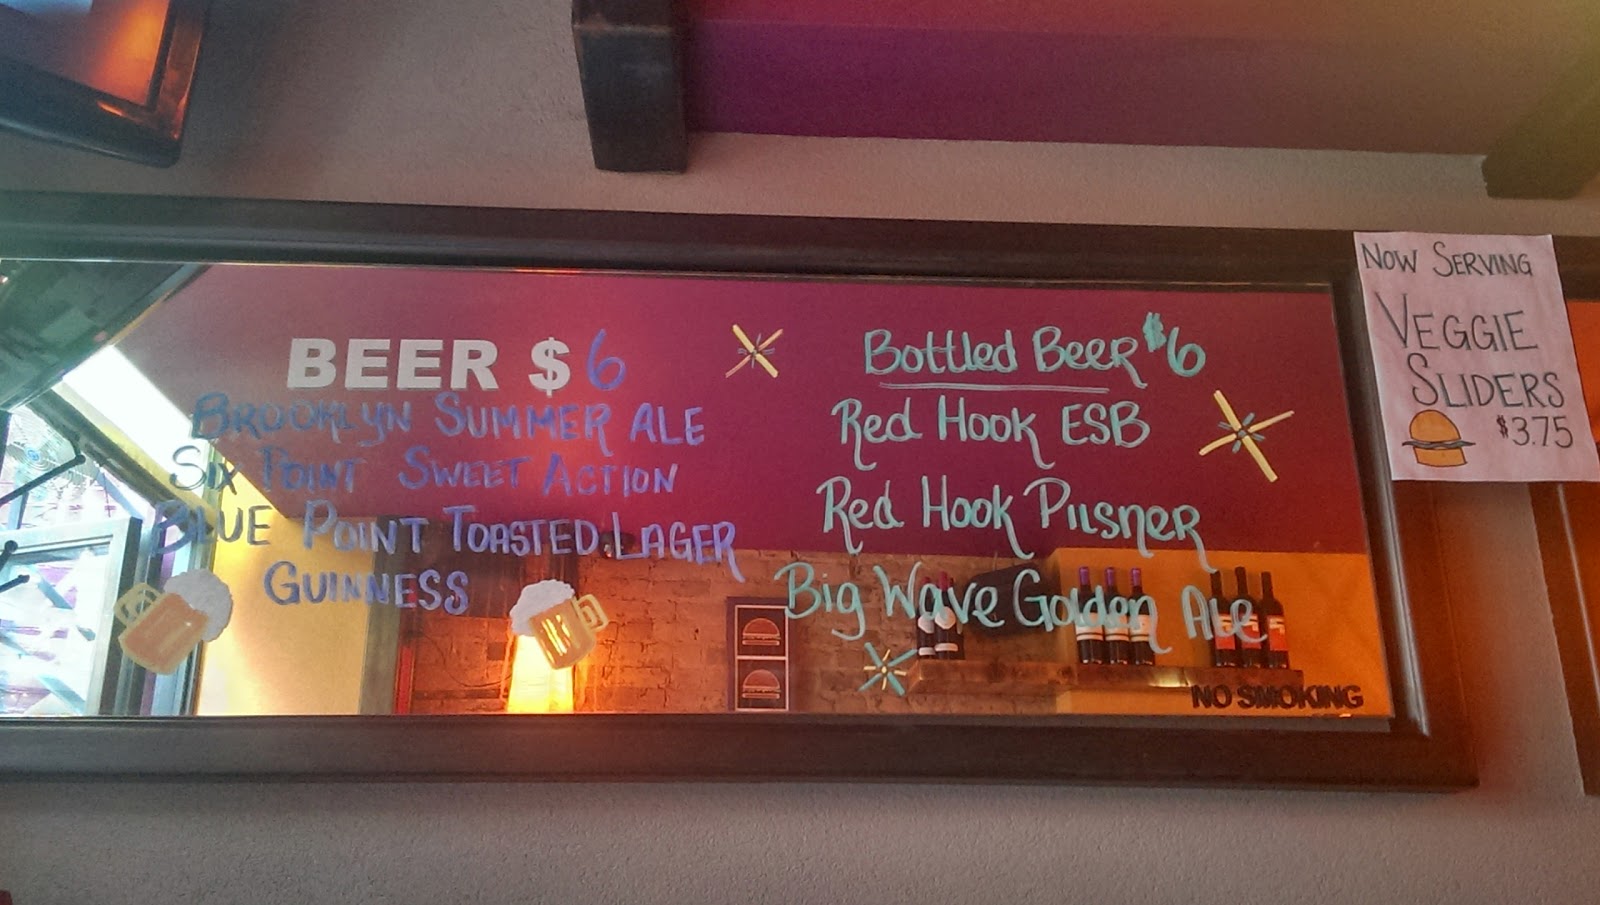 BEER $ 6
BROOKLYN SUMMER ALE
SIX POINT SWEET ACTION
BLUE POINT TOASTED LAGER
GUINNESS
Bottled Beer $6
Red Hook ESB
Red Hook Pilsner
Big Wave Golden Ale
NO SMOKING
NOW SERVING
VEGGIE
SLIDERS
$3.75